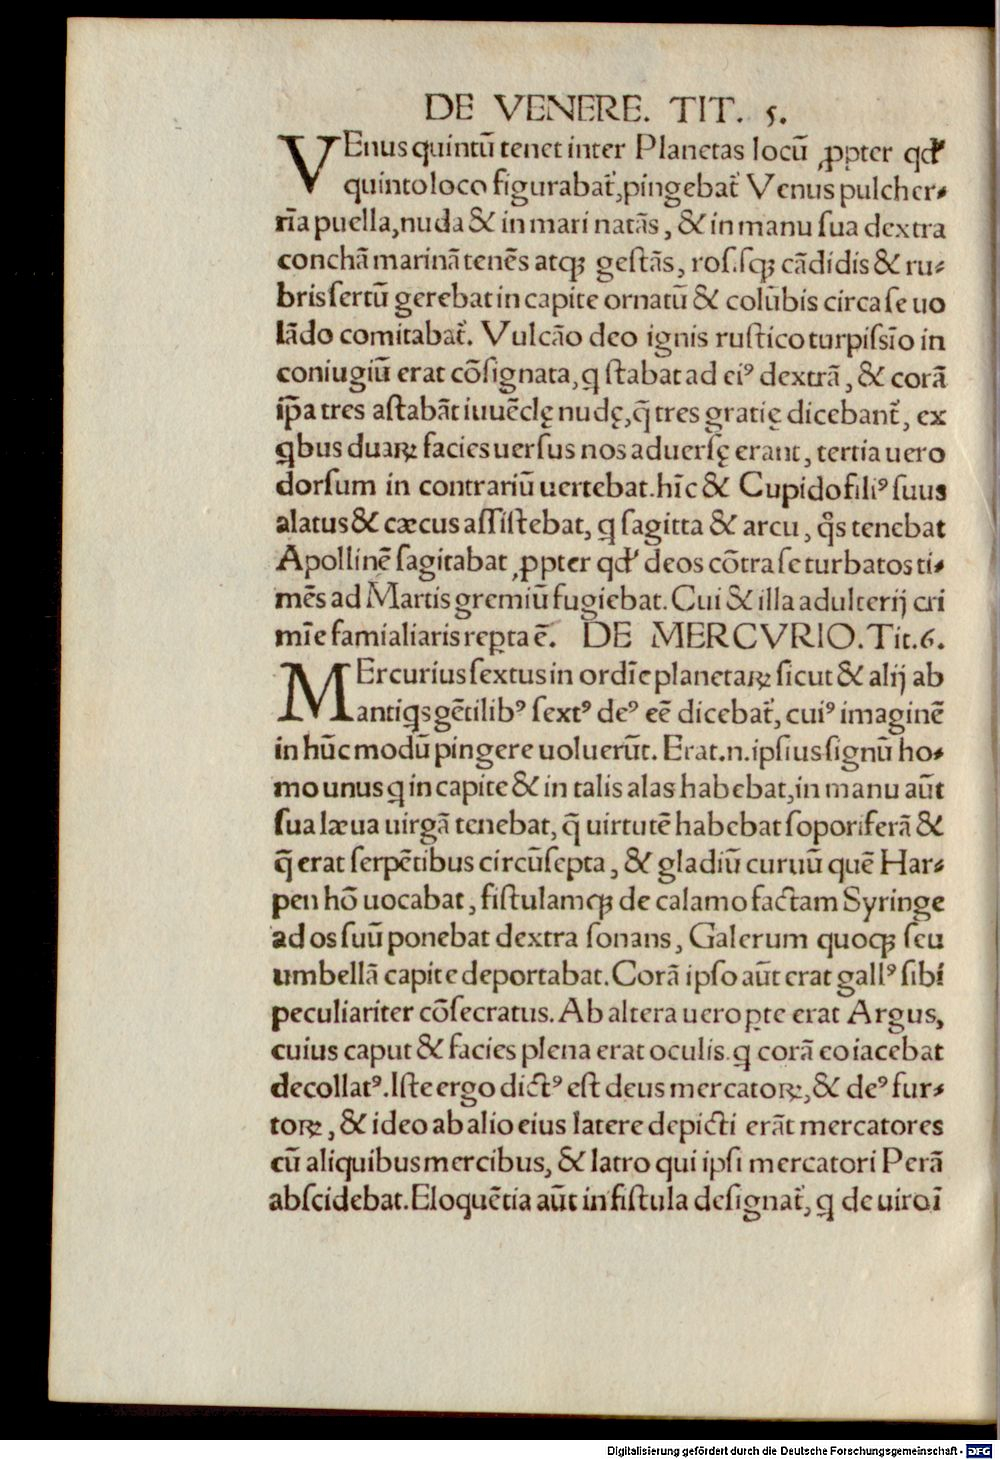 DE VENERE. TIT. 5.
VEnus quintū tenet inter Planetas locū ꝓpter qđ
quinto loco figurabat̃, pingebat̃ Venus pulcher-
rīa puella, nuda & in mari natās, & in manu ſua dextra
conchā marinā tenēs atqꝫ geſtās, roſiſqꝫ cādidis & ru-
bris ſertū gerebat in capite ornatū & colūbis circa ſe uo
lādo comitabat̃. Vulcāo deo ignis ruſtico turpiſſīo in
coniugiū erat cōſignata, ꝗ ſtabat ad eiꝰ dextrā, & corā
ip̄a tres aſtabāt iuuēclę nudę, q̄ tres gratię dicebant̃, ex
ꝗbus duaꝝ facies uerſus nos aduerſę erant, tertia uero
dorſum in contrariū uertebat. hīc & Cupido filiꝰ ſuus
alatus & cæcus aſſiſtebat, ꝗ ſagitta & arcu, q̊s tenebat
Apollinē ſagitabat ꝓpter qđ deos cōtra ſe turbatos ti-
mēs ad Martis gremiū fugiebat. Cui & illa adulterij cri
mīe famialiaris reꝑta ē. DE MERCVRIO. Tit. 6.
MErcurius ſextus in ordīe planetaꝝ ſicut & alij ab
antiꝗs gētilibꝰ ſextꝰ deꝰ eē dicebat̃, cuiꝰ imaginē
in hūc modū pingere uoluerūt. Erat .n. ipſius ſignū ho-
mo unus ꝗ in capite & in talis alas habebat, in manu aūt
ſua læua uirgā tenebat, q̄ uirtutē habebat ſoporiferā &
q̄ erat ſerpētibus circūſepta, & gladiū curuū quē Har-
pen hō uocabat, fiſtulamqꝫ de calamo factam Syringe
ad os ſuū ponebat dextra ſonans, Galerum quoqꝫ ſeu
umbellā capite deportabat. Corā ipſo aūt erat gallꝰ ſibi
peculiariter cōſecratus. Ab altera uero ꝑte erat Argus,
cuius caput & facies plena erat oculis. ꝗ corā eo iacebat
decollatꝰ. Iſte ergo dictꝰ eſt deus mercatoꝝ, & deꝰ fur-
toꝝ, & ideo ab alio eius latere depicti erāt mercatores
cū aliquibus mercibus, & latro qui ipſi mercatori Perā
abſcidebat. Eloquētia aūt in fiſtula deſignat̃, ꝗ de uiro ī
Digitalisierung gefördert durch die Deutsche Forschungsgemeinschaft - DFG